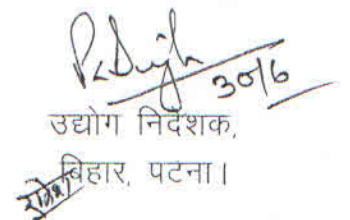 30/6
उद्योग निदेशक,
बिहार, पटना।